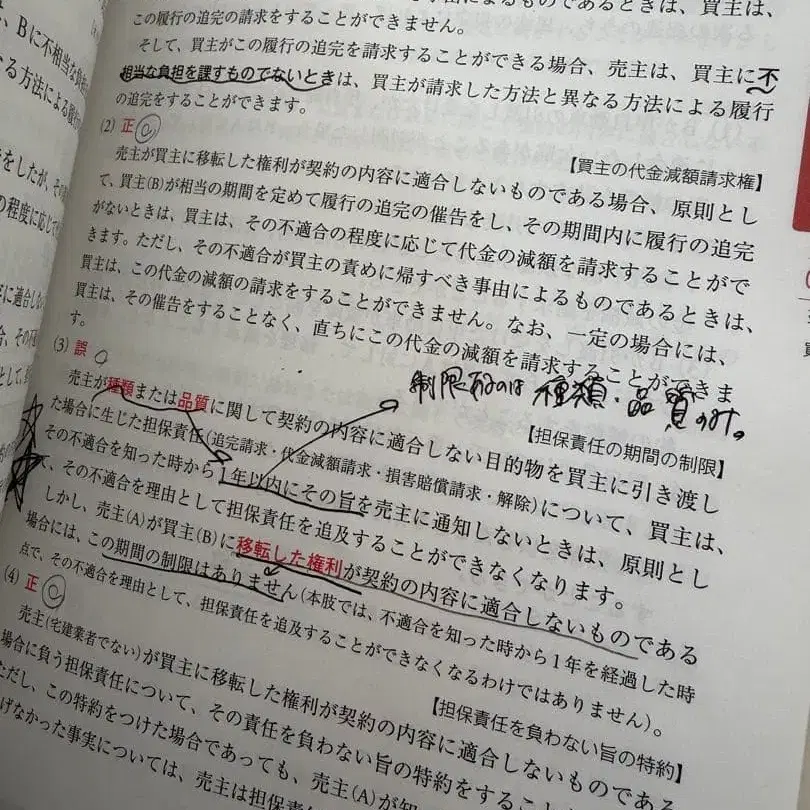 によるものであるときは、買主は、
この履行の追完の請求をすることができません。
そして、買主がこの履行の追完を請求することができる場合、売主は、買主に不
相当な負担を課すものでないときは、買主が請求した方法と異なる方法による履行
の追完をすることができます。
(2) 正
【買主の代金減額請求権】
売主が買主に移転した権利が契約の内容に適合しないものである場合、原則とし
て、買主(B)が相当の期間を定めて履行の追完の催告をし、その期間内に履行の追完
がないときは、買主は、その不適合の程度に応じて代金の減額を請求することがで
きます。ただし、その不適合が買主の責めに帰すべき事由によるものであるときは、
買主は、この代金の減額の請求をすることができません。なお、一定の場合には、
買主は、その催告をすることなく、直ちにこの代金の減額を請求することができま
す。
(3) 誤
制限有のは 種類・品質のみ。
【担保責任の期間の制限】
売主が種類または品質に関して契約の内容に適合しない目的物を買主に引き渡し
た場合に生じた担保責任(追完請求・代金減額請求・損害賠償請求・解除)について、買主は、
その不適合を知った時から1年以内にその旨を売主に通知しないときは、原則とし
て、その不適合を理由として担保責任を追及することができなくなります。
しかし、売主(A)が買主(B)に移転した権利が契約の内容に適合しないものである
場合には、この期間の制限はありません(本肢では、不適合を知った時から1年を経過した時
点で、その不適合を理由として、担保責任を追及することができなくなるわけではありません)。
(4) 正
【担保責任を負わない旨の特約】
売主(宅建業者でない)が買主に移転した権利が契約の内容に適合しないものである
場合に負う担保責任について、その責任を負わない旨の特約をすること
ただし、この特約をつけた場合であっても、売主(A)が知
げなかった事実については、売主は担保責